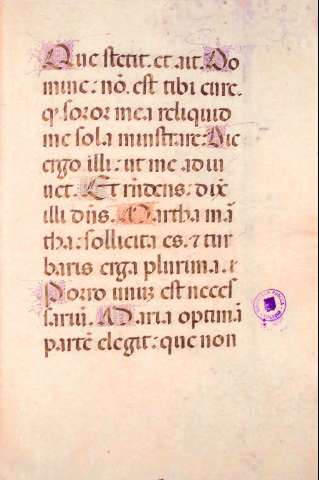 Que stetit. et ait. Do
mine: nō. est tibi cure.
q̇ soror mea reliquid
me sola ministrare: Dic
ergo illi: ut me adiu
uet. Et rn̄dens: dix̄
illi dn̄s. Martha ma
tha: sollicita es. ⁊ tur
baris erga plurima. ⁊
Porro unuȝ est neces
sariū. Maria optimā
partē elegit: que non